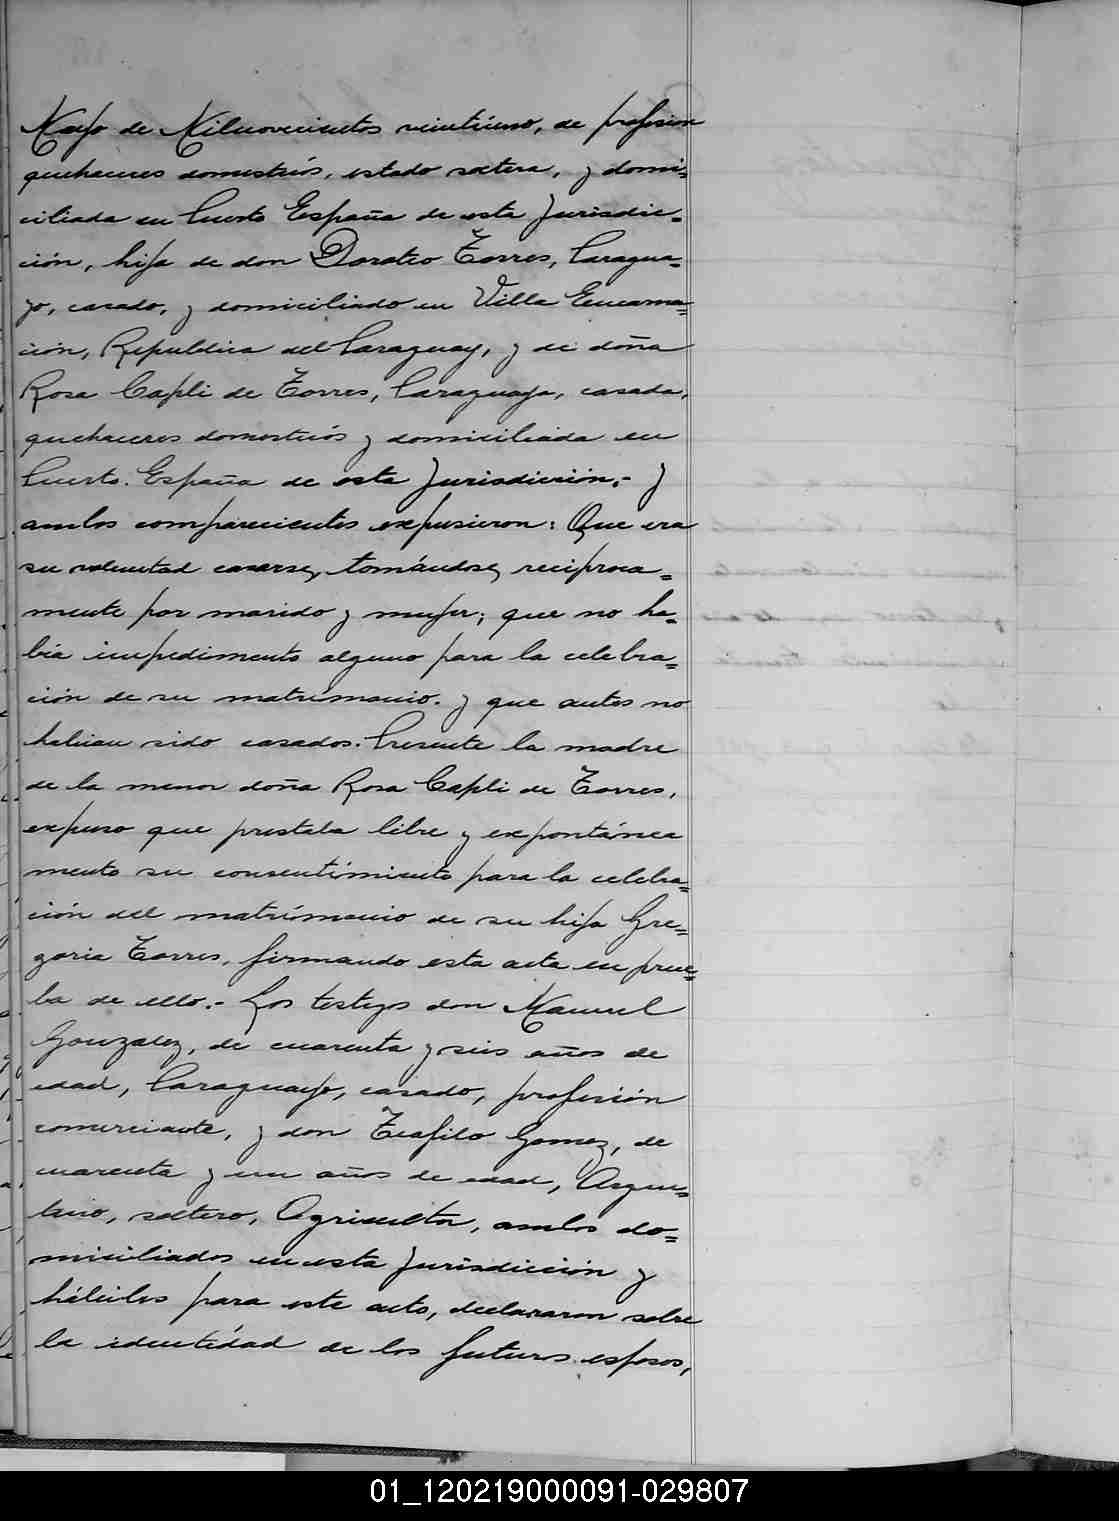 Mayo de Milnovecientos veintiuno, de profesion
quehaceres domesticos, estado soltera, y domi=
ciliada en Puerto España de esta Jurisdic=
ción, hija de don Doroteo Torres, Paragua=
yo, casado, y domiciliado en Villa Encarna=
ción, Republica del Paraguay, y de doña
Rosa Capli de Torres, Paraguaya, casada,
quehaceres domesticós y domiciliada en
Puerto España de esta Jurisdicción.- y
ambos comparecientes expusieron: Que era
su voluntad casarse, tomándose, reciproca=
mente por marido y mujer; que no ha=
bía impedimento alguno para la celebra=
ción de su matrimonio. y que antes no
habian sido casados. Presente la madre
de la menor doña Rosa Capli de Torres,
expuso que prestaba libre y expontánea
mente su consentimiento para la celebra=
ción del matrimonio de su hija Gre=
goria Torres, firmando esta acta en prue=
ba de ello.- Los testigos don Manuel
Gonzalez, de cuarenta y seis años de
edad, Paraguayo, casado, profesión
comerciante, y don Teofilo Gomez, de
cuarenta y un años de edad, Argen=
tino, soltero, Agricultor, ambos do=
miciliados en esta Jurisdicción y
hábiles para este acto, declararon sobre
la identidad de los futuros esposos,
01_120219000091-029807